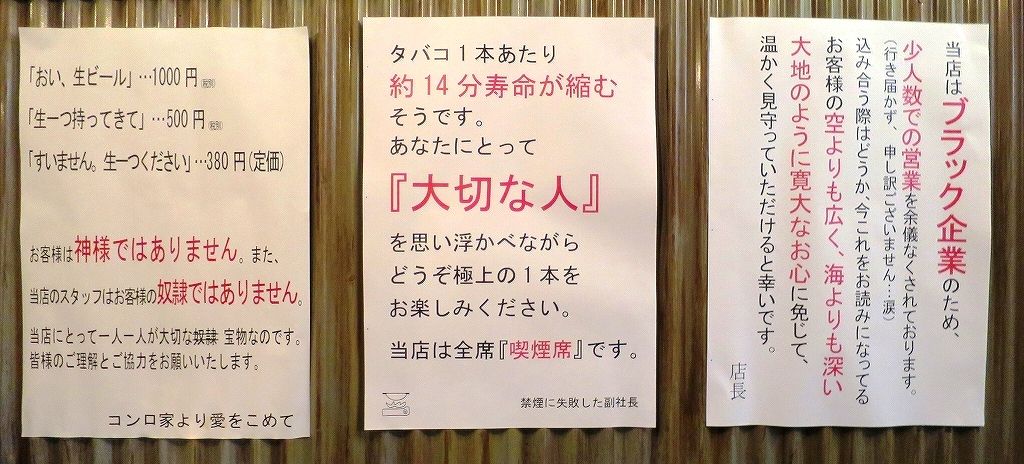 「おい、生ビール」…1000円(税別)
「生一つ持ってきて」…500円(税別)
「すいません。生一つください」…380円(定価)
お客様は神様ではありません。また、
当店のスタッフはお客様の奴隷ではありません。
当店にとって一人一人が大切な奴隷 宝物なのです。
皆様のご理解とご協力をお願いいたします。
コンロ家より愛をこめて
タバコ1本あたり
約14分寿命が縮む
そうです。
あなたにとって
『大切な人』
を思い浮かべながら
どうぞ極上の1本を
お楽しみください。
当店は全席『喫煙席』です。
禁煙に失敗した副社長
当店はブラック企業のため、
少人数での営業を余儀なくされております。
(行き届かず、申し訳ございません…涙)
込み合う際はどうか、今これをお読みになってる
お客様の空よりも広く、海よりも深い
大地のように寛大なお心に免じて、
温かく見守っていただけると幸いです。
店長